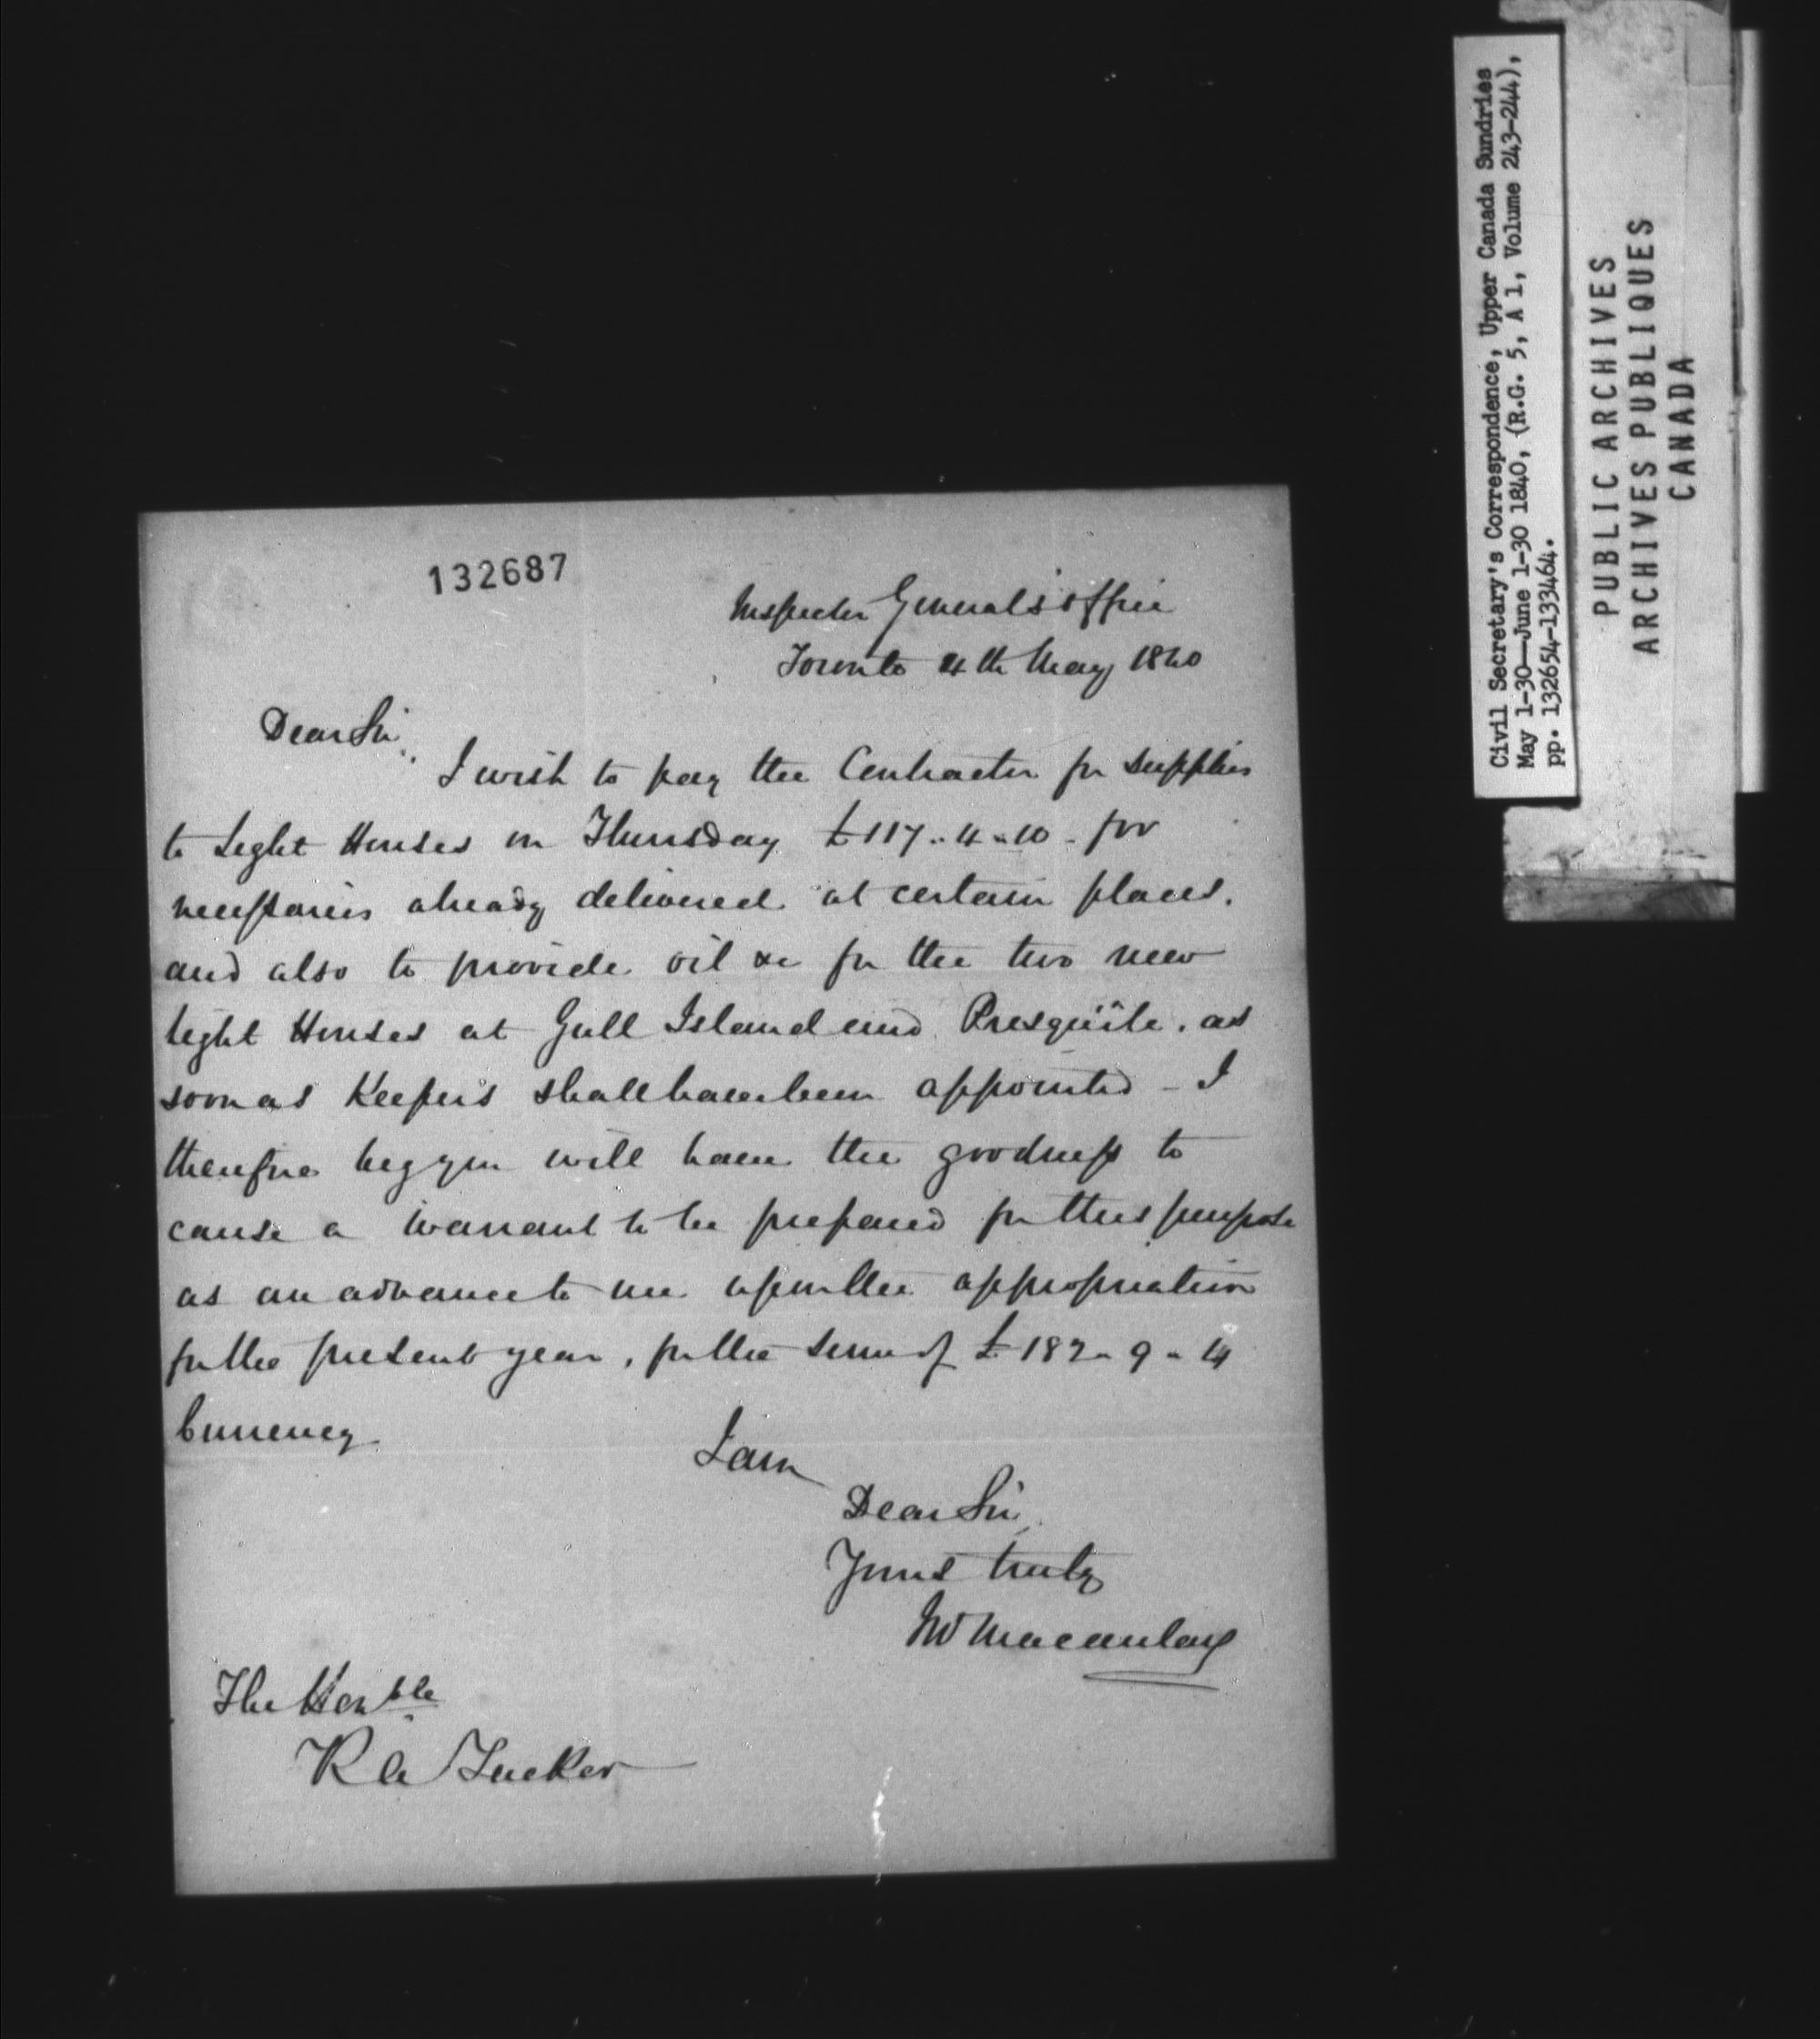 132687
Inspector General's Office
Toronto 4th May 1840
Dear Sir,
I wish to pay the Contractor for supplies
to Light Houses on Thursday £117..4..10 - for
necessaries already delivered at certain places,
and also to provide oil &c for the two new
Light Houses at Gull Island and Presqu'ile, as
soon as Keepers shall have been appointed - I
therefore beg you will have the goodness to
cause a Warrant to be prepared for this purpose
as an advance to me upon the appropriation
for the present year, for the sum of £ 182 - 9 - 4
Currency.
I am
Dear Sir,
Yours truly
Jno Macaulay
The Honble
R A Tucker
Civil Secretary's Correspondence, Upper Canada Sundries
May 1-30—June 1-30 1840, (R.G. 5, A 1, Volume 243-244),
pp. 132654-133464.
PUBLIC ARCHIVES
ARCHIVES PUBLIQUES
CANADA